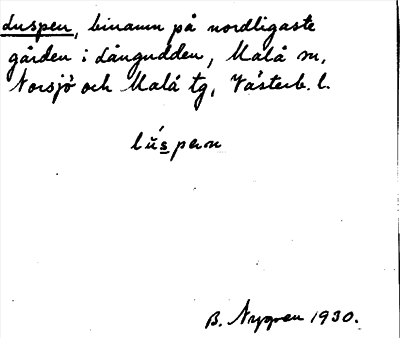 Luspen, binamn på nordligaste
gården i Långudden, Malå sn,
Norsjö och Malå tg, Västerb. l.
lúspenn
B. Nygren 1930.